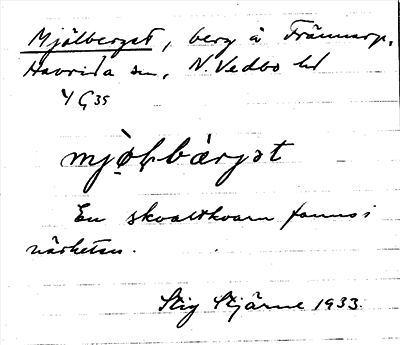 Mjölberget, berg å Främmarp,
Haurida sn, N. Vedbo hd
4 G 35
mjö̀ḷbärjət
En skvaltkvarn fanns i
närheten.
Stig Stjärne 1933.